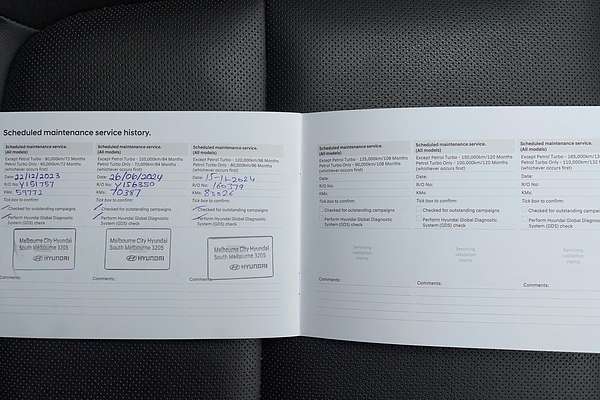 Scheduled maintenance service history.
Scheduled maintenance service.
(All models)
Except Petrol Turbo - 90,000km/72 Months
(whichever occurs first)
Date: 22/12/2023
R/O No: Y151757
KMs: 59772
Tick box to confirm:
Checked for outstanding campaigns
Perform Hyundai Global Diagnostic
System (GDS) check
Melbourne City Hyundai
South Melbourne 3205
HYUNDAI
Comments:
Scheduled maintenance service.
(All models)
(whichever occurs first)
Date: 26/06/2024
R/O No: Y156350
KMs: 70387
Tick box to confirm:
Checked for outstanding campaigns
Perform Hyundai Global Diagnostic
System (GDS) check
Melbourne City Hyundai
South Melbourne 3205
HYUNDAI
Comments:
Scheduled maintenance service.
(All models)
(whichever occurs first)
Date: 15-11-2024
R/O No: 160379
KMs: 83026
Tick box to confirm:
Checked for outstanding campaigns
Perform Hyundai Global Diagnostic
System (GDS) check
Melbourne City Hyundai
South Melbourne 3205
HYUNDAI
Comments:
Scheduled maintenance service.
(All models)
Except Petrol Turbo - 135,000km/108 Months
Petrol Turbo Only - 90,000km/108 Months
(whichever occurs first)
Date:
R/O No:
KMs:
Tick box to confirm:
Checked for outstanding campaigns
Perform Hyundai Global Diagnostic
System (GDS) check
Servicing
validation
stamp
Comments:
Scheduled maintenance service.
(All models)
Except Petrol Turbo - 150,000km/120 Months
Petrol Turbo Only - 100,000km/120 Months
(whichever occurs first)
Date:
R/O No:
KMs:
Tick box to confirm:
Checked for outstanding campaigns
Perform Hyundai Global Diagnostic
System (GDS) check
Servicing
validation
stamp
Comments:
Scheduled maintenance service.
(All models)
Except Petrol Turbo - 165,000km/13
Petrol Turbo Only - 110,000km/132
(whichever occurs first)
Date:
R/O No:
KMs:
Tick box to confirm:
Checked for outstanding campaigns
Perform Hyundai Global Diagnostic
System (GDS) check
Servicing
validation
stamp
Comments: